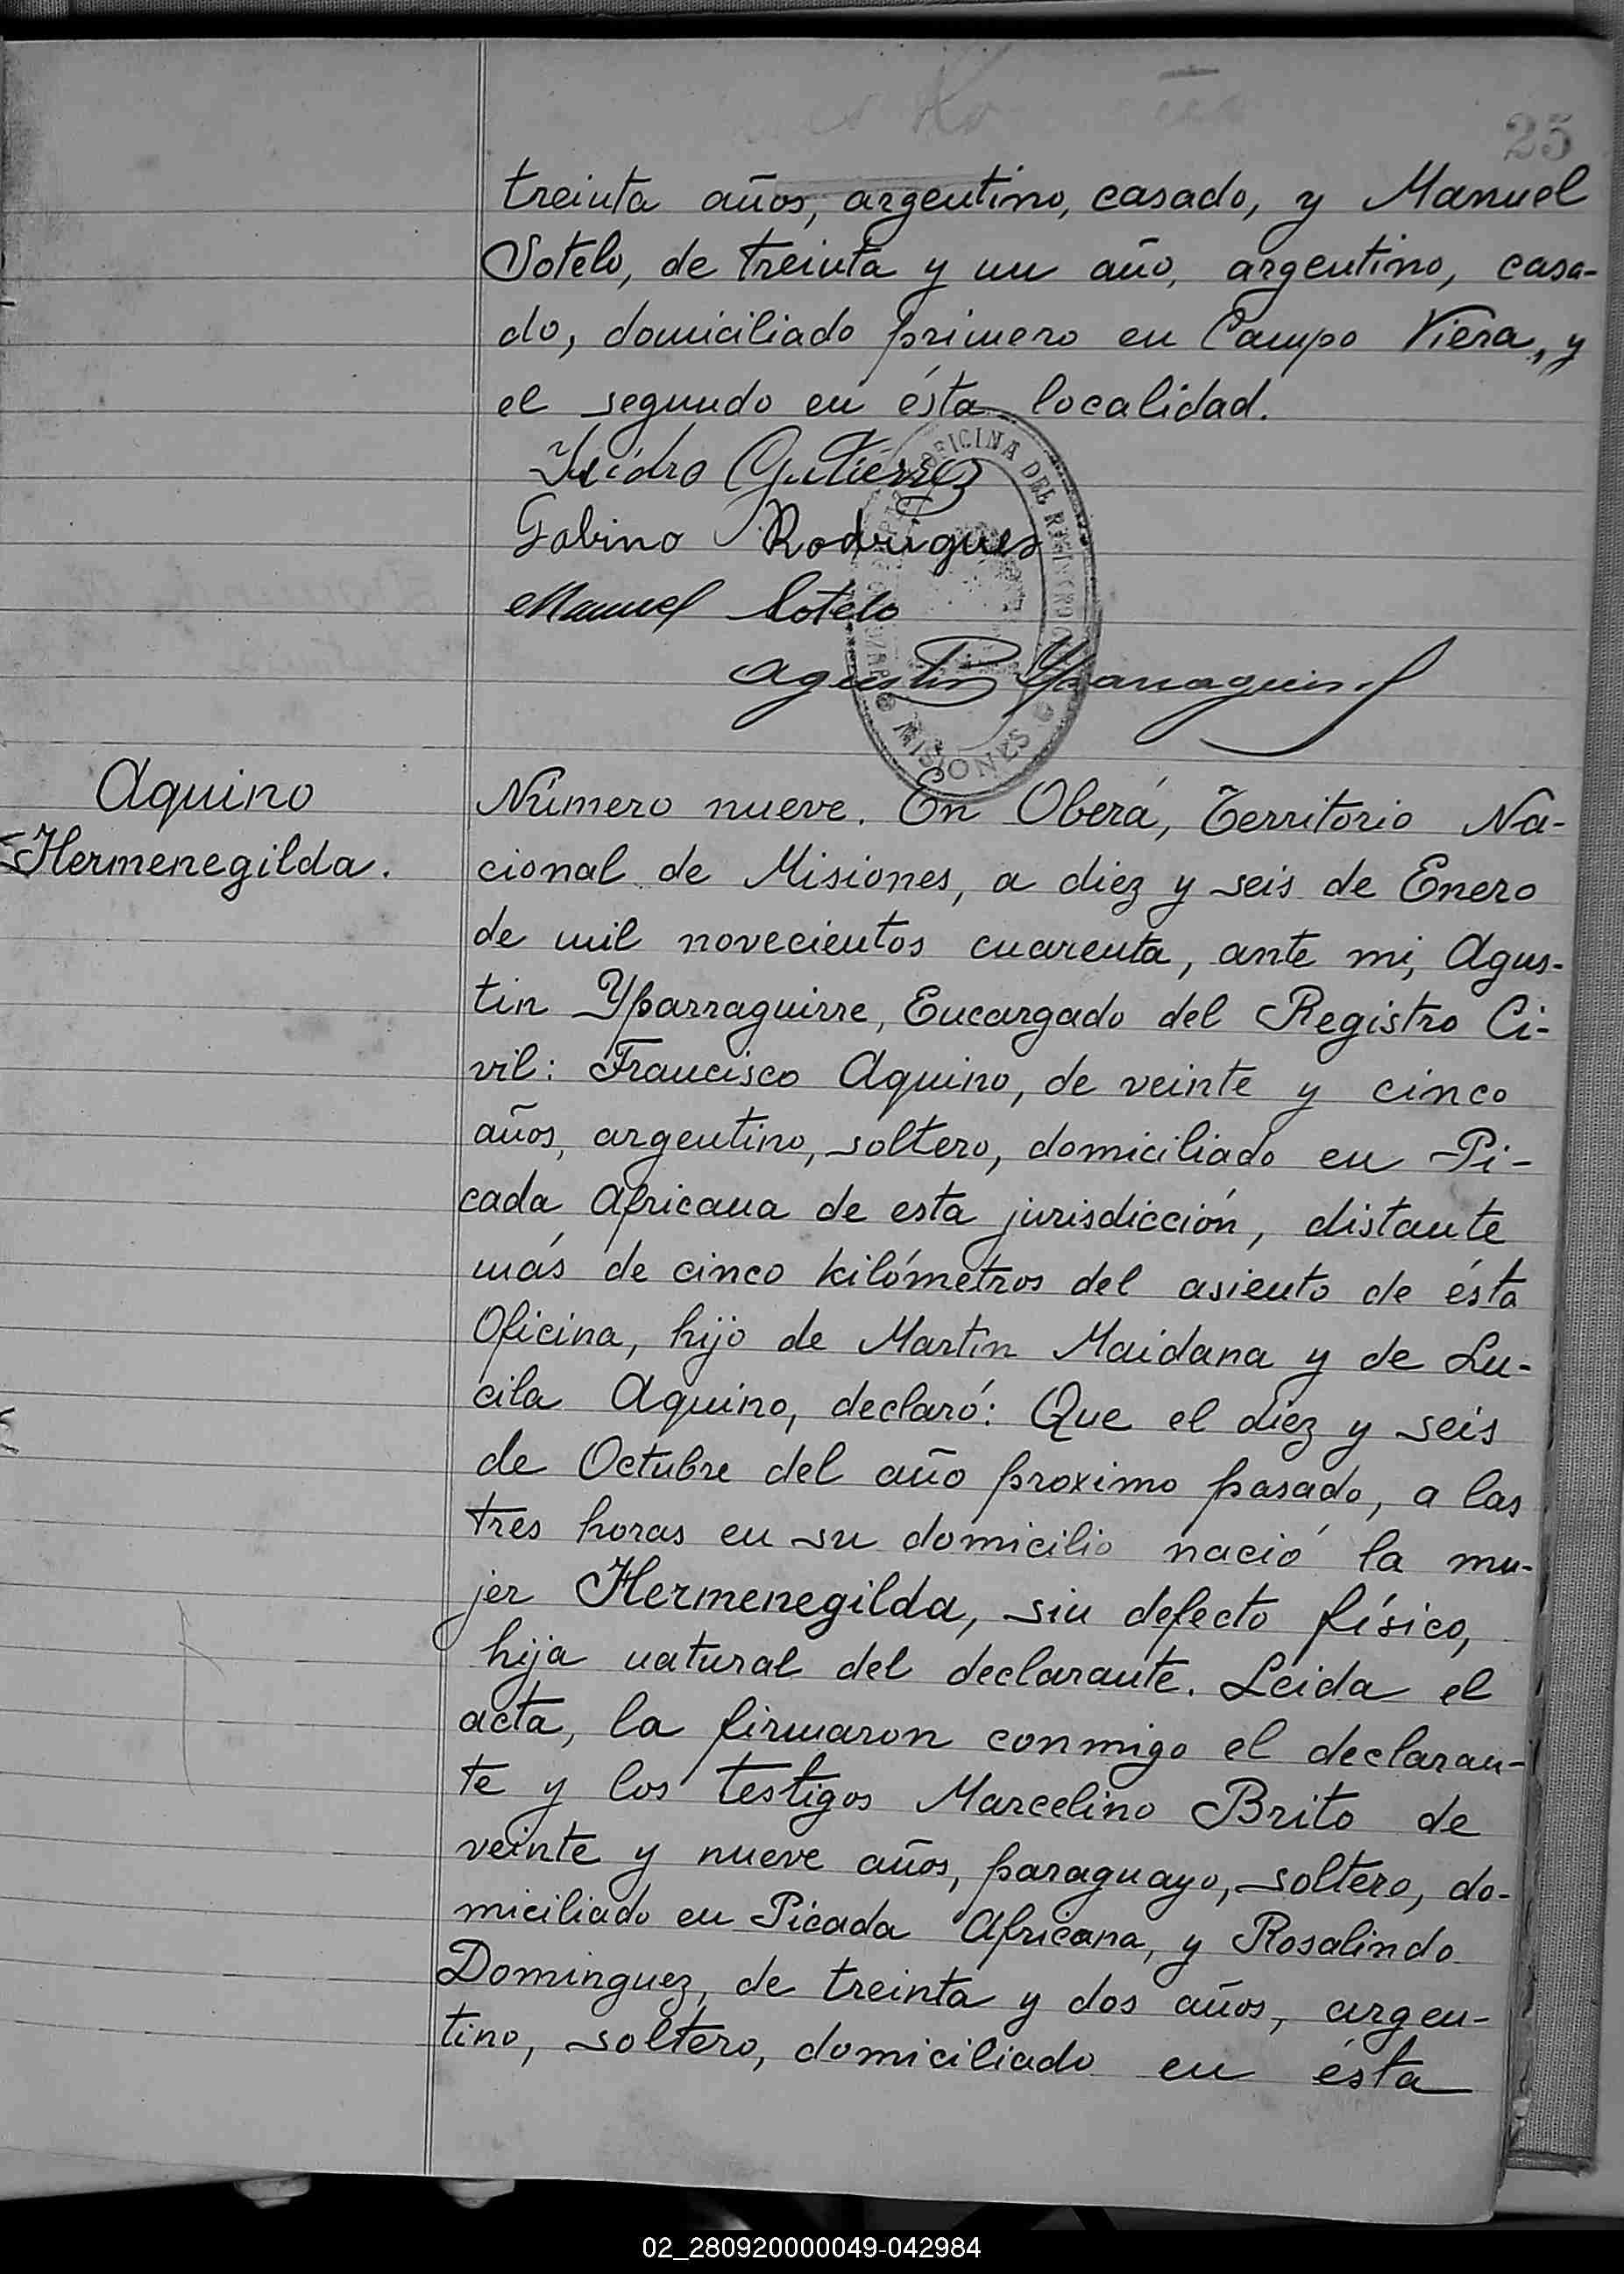 25
treinta años, argentino, casado, y Manuel
Sotelo, de treinta y un año, argentino, casa-
do, domiciliado primero en Campo Viera, y
el segundo en ésta localidad.
Isidro Gutierrez
Gabino Rodrigues
Manuel Sotelo
Agustin Yparraguirre
OFICINA DEL REGISTRO
MISIONES
Aquino
Hermenegilda.
Número nueve. En Oberá, Territorio Na-
cional de Misiones, a diez y seis de Enero
de mil novecientos cuarenta, ante mi, Agus-
tin Yparraguirre, Encargado del Registro Ci-
vil: Francisco Aquino, de veinte y cinco
años, argentino, soltero, domiciliado en Pi-
cada Africana de esta jurisdicción, distante
más de cinco kilómetros del asiento de ésta
Oficina, hijo de Martín Maidana y de Lu-
cila Aquino, declaró: Que el diez y seis
de Octubre del año proximo pasado, a las
tres horas en su domicilio nació la mu-
jer Hermenegilda, sin defecto físico,
hija natural del declarante. Leida el
acta, la firmaron conmigo el declaran-
te y los testigos Marcelino Brito de
veinte y nueve años, paraguayo, soltero, do-
miciliado en Picada Africana, y Rosalindo
Dominguez, de treinta y dos años, argen-
tino, soltero, domiciliado en ésta
02_280920000049-042984